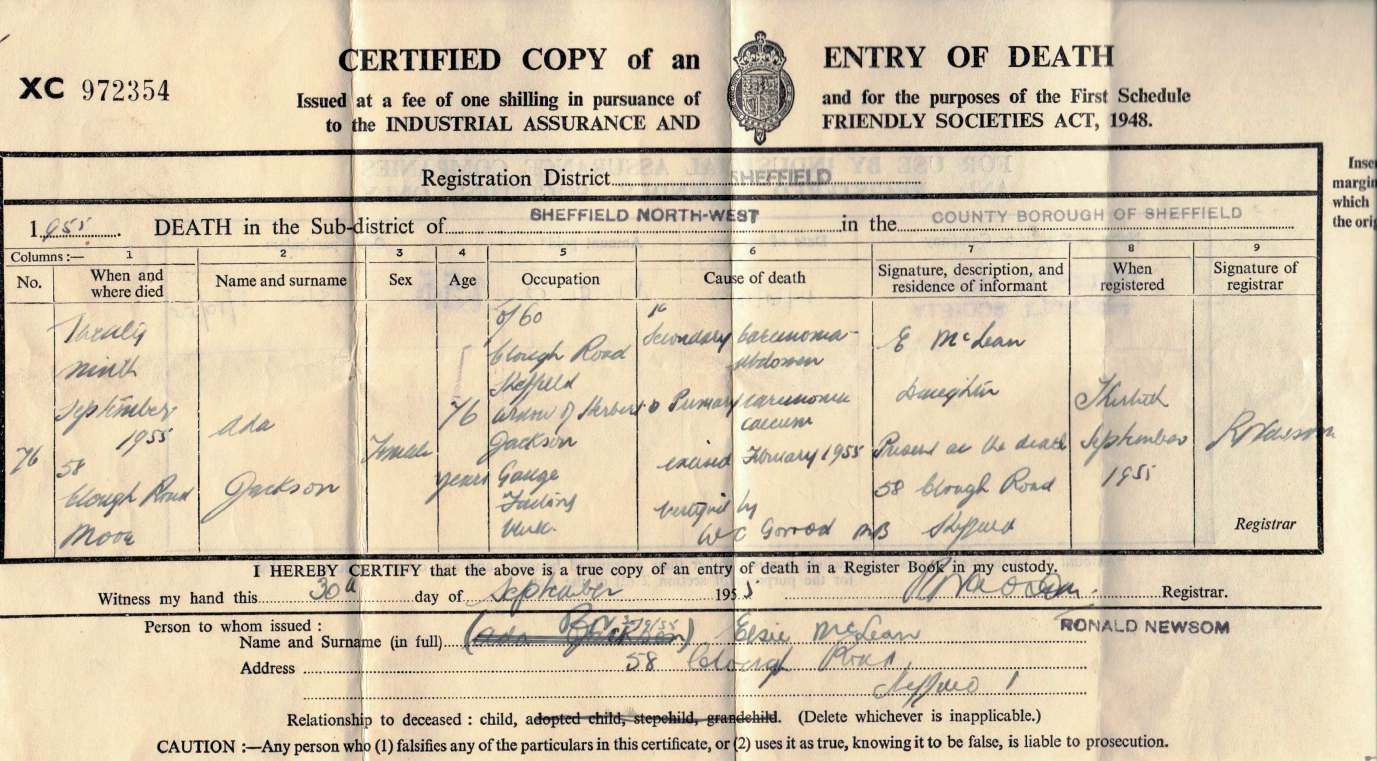 XC 972354
CERTIFIED COPY of an ENTRY OF DEATH
Issued at a fee of one shilling in pursuance of and for the purposes of the First Schedule
to the INDUSTRIAL ASSURANCE AND FRIENDLY SOCIETIES ACT, 1948.
Inse
margin
which
the orig
Registration District SHEFFIELD
1955. DEATH in the Sub-district of SHEFFIELD NORTH-WEST in the COUNTY BOROUGH OF SHEFFIELD
Columns :— 1 2 3 4 5 6 7 8 9
No. When and where died Name and surname Sex Age Occupation Cause of death Signature, description, and residence of informant When registered Signature of registrar
76
Twenty
ninth
September
1955
58
Clough Road
Moor
Ada
Jackson
Female
76
years
of 60
Clough Road
Sheffield
widow of Herbert
Jackson
Gauge
Secondary carcinoma
abdomen
Primary carcinoma
caecum
excised February 1955
Certified by
W C Gorrod MB
E McLean
Daughter
Present at the death
58 Clough Road
Sheffield
Thirtieth
September
1955
R Newsom
Registrar
I HEREBY CERTIFY that the above is a true copy of an entry of death in a Register Book in my custody.
Witness my hand this 30th day of September 1955 R Newsom Registrar.
RONALD NEWSOM
Person to whom issued :
Name and Surname (in full) (Ada Jackson) Elsie McLean
Address 58 Clough Road,
Sheffield 1
Relationship to deceased : child, adopted child, stepchild, grandchild. (Delete whichever is inapplicable.)
CAUTION :—Any person who (1) falsifies any of the particulars in this certificate, or (2) uses it as true, knowing it to be false, is liable to prosecution.